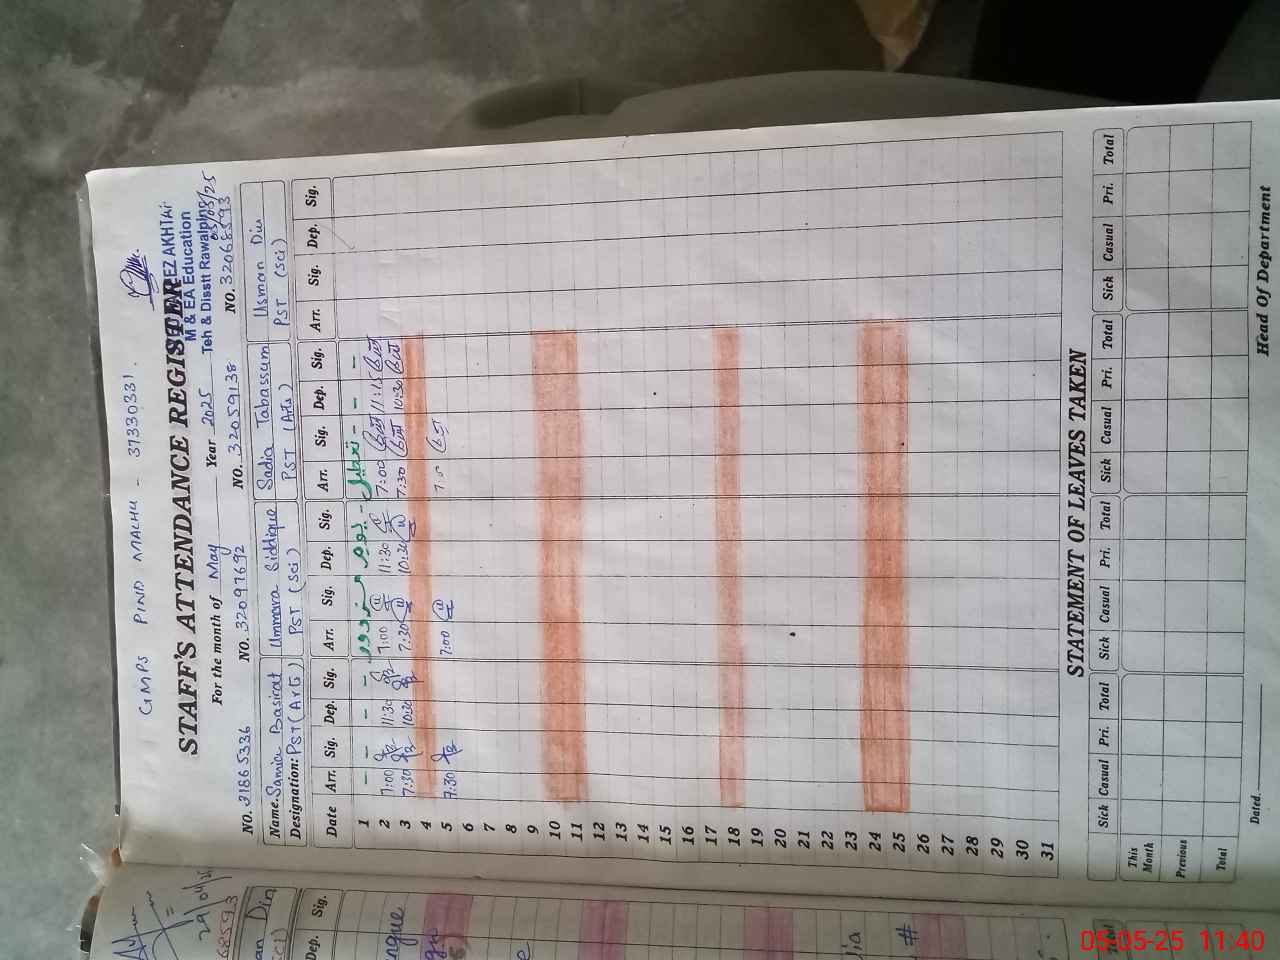 GMPS PIND MALHU - 37330331.
STAFF'S ATTENDANCE REGISTER
EZ AKHTAR
M & EA Education
Teh & Disstt Rawalpindi
05/05/25
For the month of May Year 2025
NO. 31865336 NO. 32097692 NO. 32059138 NO. 32068593
Name. Samia Basirat Ummara Siddique Sadia Tabassum Usman Din
Designation: PST (Art) PST (Sci) PST (Arts) PST (Sci)
Date Arr. Sig. Dep. Sig. Arr. Sig. Dep. Sig. Arr. Sig. Dep. Sig. Arr. Sig. Dep. Sig.
1 - - - - یوم مزدور - تعطیل - - -
2 7:00 11:30 7:00 11:30 7:00 11:15
3 7:30 10:30 7:30 10:30 7:30 10:30
4
5 7:30 7:00
6
7
8
9
10
11
12
13
14
15
16
17
18
19
20
21
22
23
24
25
26
27
28
29
30
31
STATEMENT OF LEAVES TAKEN
Sick Casual Pri. Total Sick Casual Pri. Total Sick Casual Pri. Total Sick Casual Pri. Total
This Month
Previous
Total
Dated. Head Of Department
29/04/25
68593
an Din
Dep. Sig.
#
Total
05-05-25 11:40